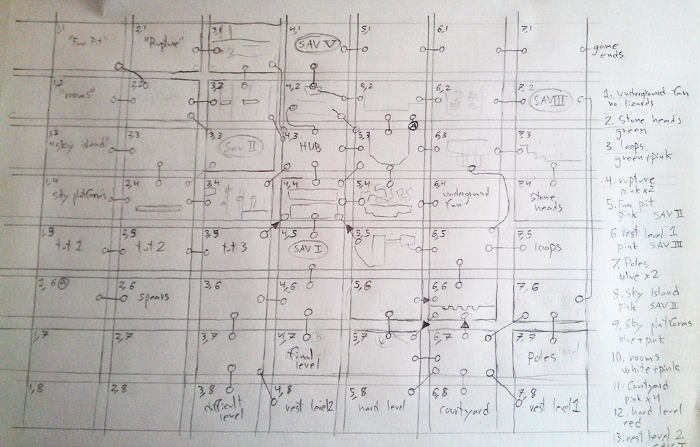 1,1
2,1
3,1
4,1
5,1
6,1
7,1
"Fun Pit"
"Rupture"
SAV V
game
ends
1,2
3,2
4,2
5,2
6,2
7,2
"rooms"
SAV III
1,3
2,3
3,3
4,3
5,3
7,3
"sky island"
SAV II
HUB
1,4
2,4
3,4
4,4
5,4
6,4
7,4
sky platforms
underground
fan
Stone
heads
1,5
2,5
3,5
4,5
5,5
6,5
7,5
tut 1
tut 2
tut 3
SAV I
loops
1,6
2,6
3,6
4,6
5,6
6,6
7,6
spears
1,7
2,7
3,7
4,7
5,7
6,7
7,7
final
level
Poles
1,8
2,8
3,8
4,8
5,8
6,8
7,8
difficult
level
vest level 2
hard level
courtyard
vest level 1
1. Underground fan
no lizards
2. Stone heads
green
3. loops
green+pink
4. rupture
pink x2
5. Fun pit
pink SAV II
6. vest level 1
pink SAV III
7. Poles
blue x2
8. Sky Island
pink SAV II
9. Sky platforms
blue+pink
10. rooms
white+pink
11. Courtyard
pink x4
12. hard level
red
13. vest level 2